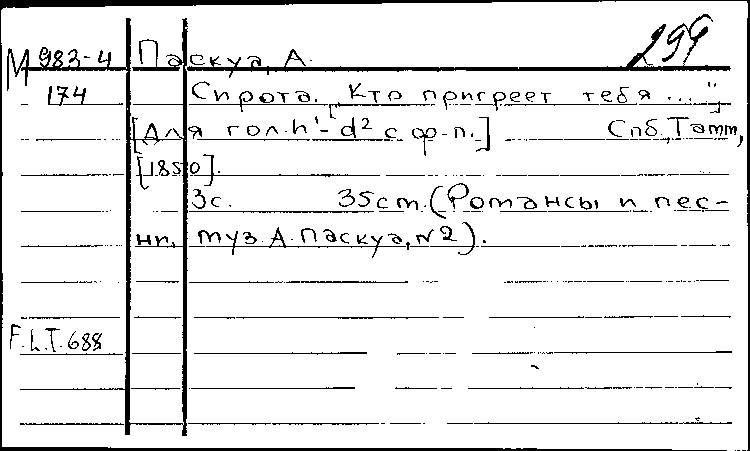 М 983-4 Паскуа, А. 299
174 Сирота. „Кто пригреет тебя ..."
[Для гол. h¹- d² с ф-п.] Спб, Тамм,
[1850].
3с. 35cm (Романсы и пес-
ни, муз. А. Паскуа, №2).
F.L.T. 688